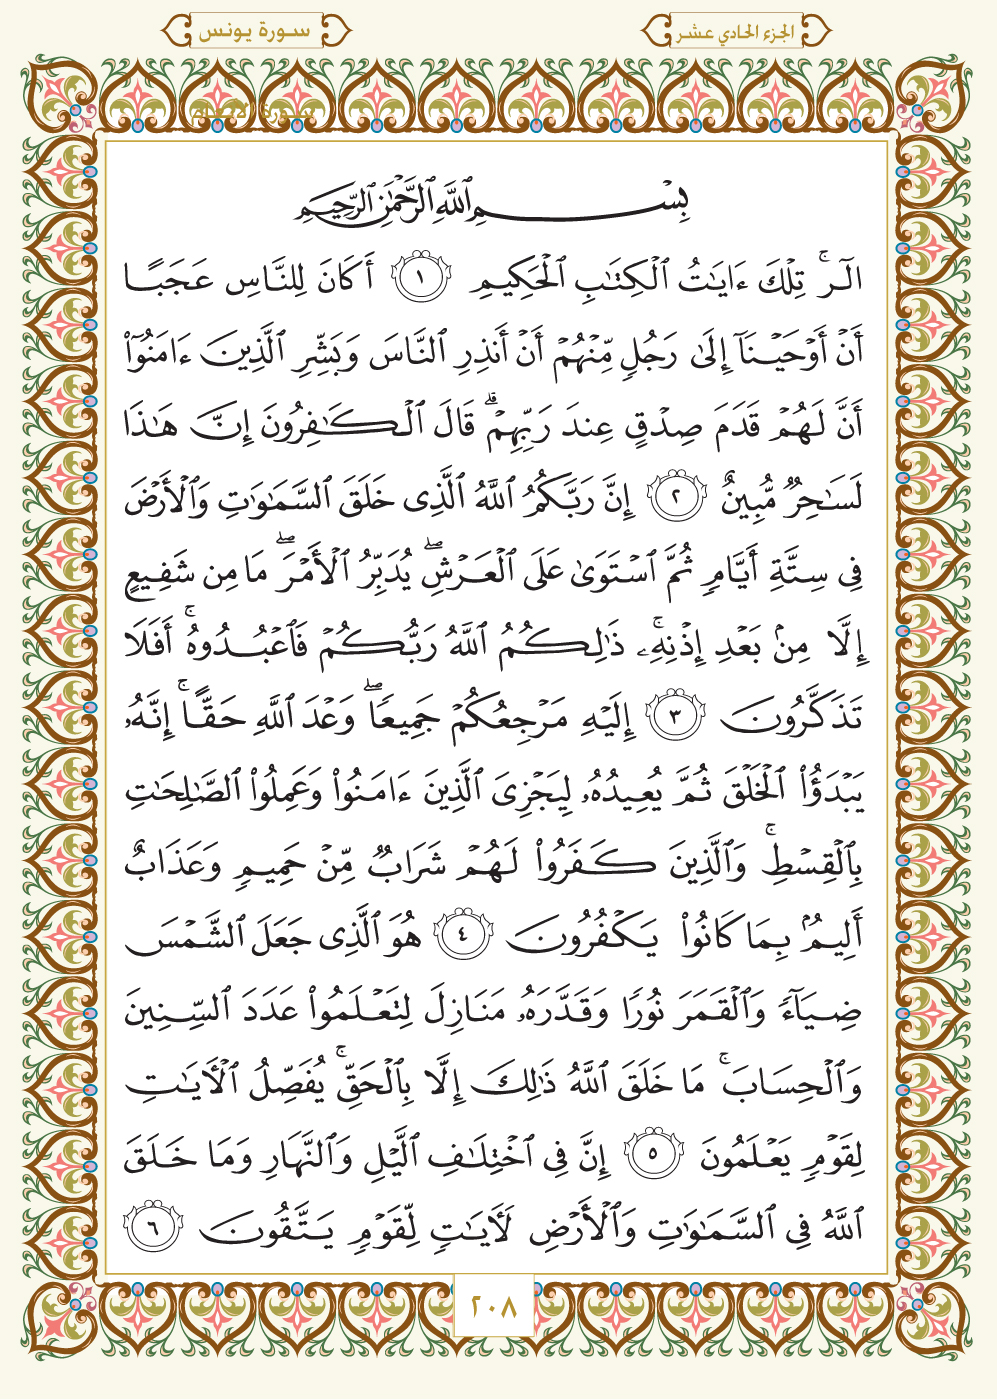 الجزء الحادي عشر
سورة يونس
بِسْمِ ٱللَّهِ ٱلرَّحْمَٰنِ ٱلرَّحِيمِ
الٓر ۚ تِلْكَ ءَايَٰتُ ٱلْكِتَٰبِ ٱلْحَكِيمِ ١ أَكَانَ لِلنَّاسِ عَجَبًا
أَنْ أَوْحَيْنَآ إِلَىٰ رَجُلٍ مِّنْهُمْ أَنْ أَنذِرِ ٱلنَّاسَ وَبَشِّرِ ٱلَّذِينَ ءَامَنُوٓا۟
أَنَّ لَهُمْ قَدَمَ صِدْقٍ عِندَ رَبِّهِمْ ۗ قَالَ ٱلْكَٰفِرُونَ إِنَّ هَٰذَا
لَسَٰحِرٌ مُّبِينٌ ٢ إِنَّ رَبَّكُمُ ٱللَّهُ ٱلَّذِى خَلَقَ ٱلسَّمَٰوَٰتِ وَٱلْأَرْضَ
فِى سِتَّةِ أَيَّامٍ ثُمَّ ٱسْتَوَىٰ عَلَى ٱلْعَرْشِ ۖ يُدَبِّرُ ٱلْأَمْرَ ۖ مَا مِن شَفِيعٍ
إِلَّا مِنۢ بَعْدِ إِذْنِهِۦ ۚ ذَٰلِكُمُ ٱللَّهُ رَبُّكُمْ فَٱعْبُدُوهُ ۚ أَفَلَا
تَذَكَّرُونَ ٣ إِلَيْهِ مَرْجِعُكُمْ جَمِيعًا ۖ وَعْدَ ٱللَّهِ حَقًّا ۚ إِنَّهُۥ
يَبْدَؤُا۟ ٱلْخَلْقَ ثُمَّ يُعِيدُهُۥ لِيَجْزِىَ ٱلَّذِينَ ءَامَنُوا۟ وَعَمِلُوا۟ ٱلصَّٰلِحَٰتِ
بِٱلْقِسْطِ ۚ وَٱلَّذِينَ كَفَرُوا۟ لَهُمْ شَرَابٌ مِّنْ حَمِيمٍ وَعَذَابٌ
أَلِيمٌۢ بِمَا كَانُوا۟ يَكْفُرُونَ ٤ هُوَ ٱلَّذِى جَعَلَ ٱلشَّمْسَ
ضِيَآءً وَٱلْقَمَرَ نُورًا وَقَدَّرَهُۥ مَنَازِلَ لِتَعْلَمُوا۟ عَدَدَ ٱلسِّنِينَ
وَٱلْحِسَابَ ۚ مَا خَلَقَ ٱللَّهُ ذَٰلِكَ إِلَّا بِٱلْحَقِّ ۚ يُفَصِّلُ ٱلْءَايَٰتِ
لِقَوْمٍ يَعْلَمُونَ ٥ إِنَّ فِى ٱخْتِلَٰفِ ٱلَّيْلِ وَٱلنَّهَارِ وَمَا خَلَقَ
ٱللَّهُ فِى ٱلسَّمَٰوَٰتِ وَٱلْأَرْضِ لَءَايَٰتٍ لِّقَوْمٍ يَتَّقُونَ ٦
٢٠٨